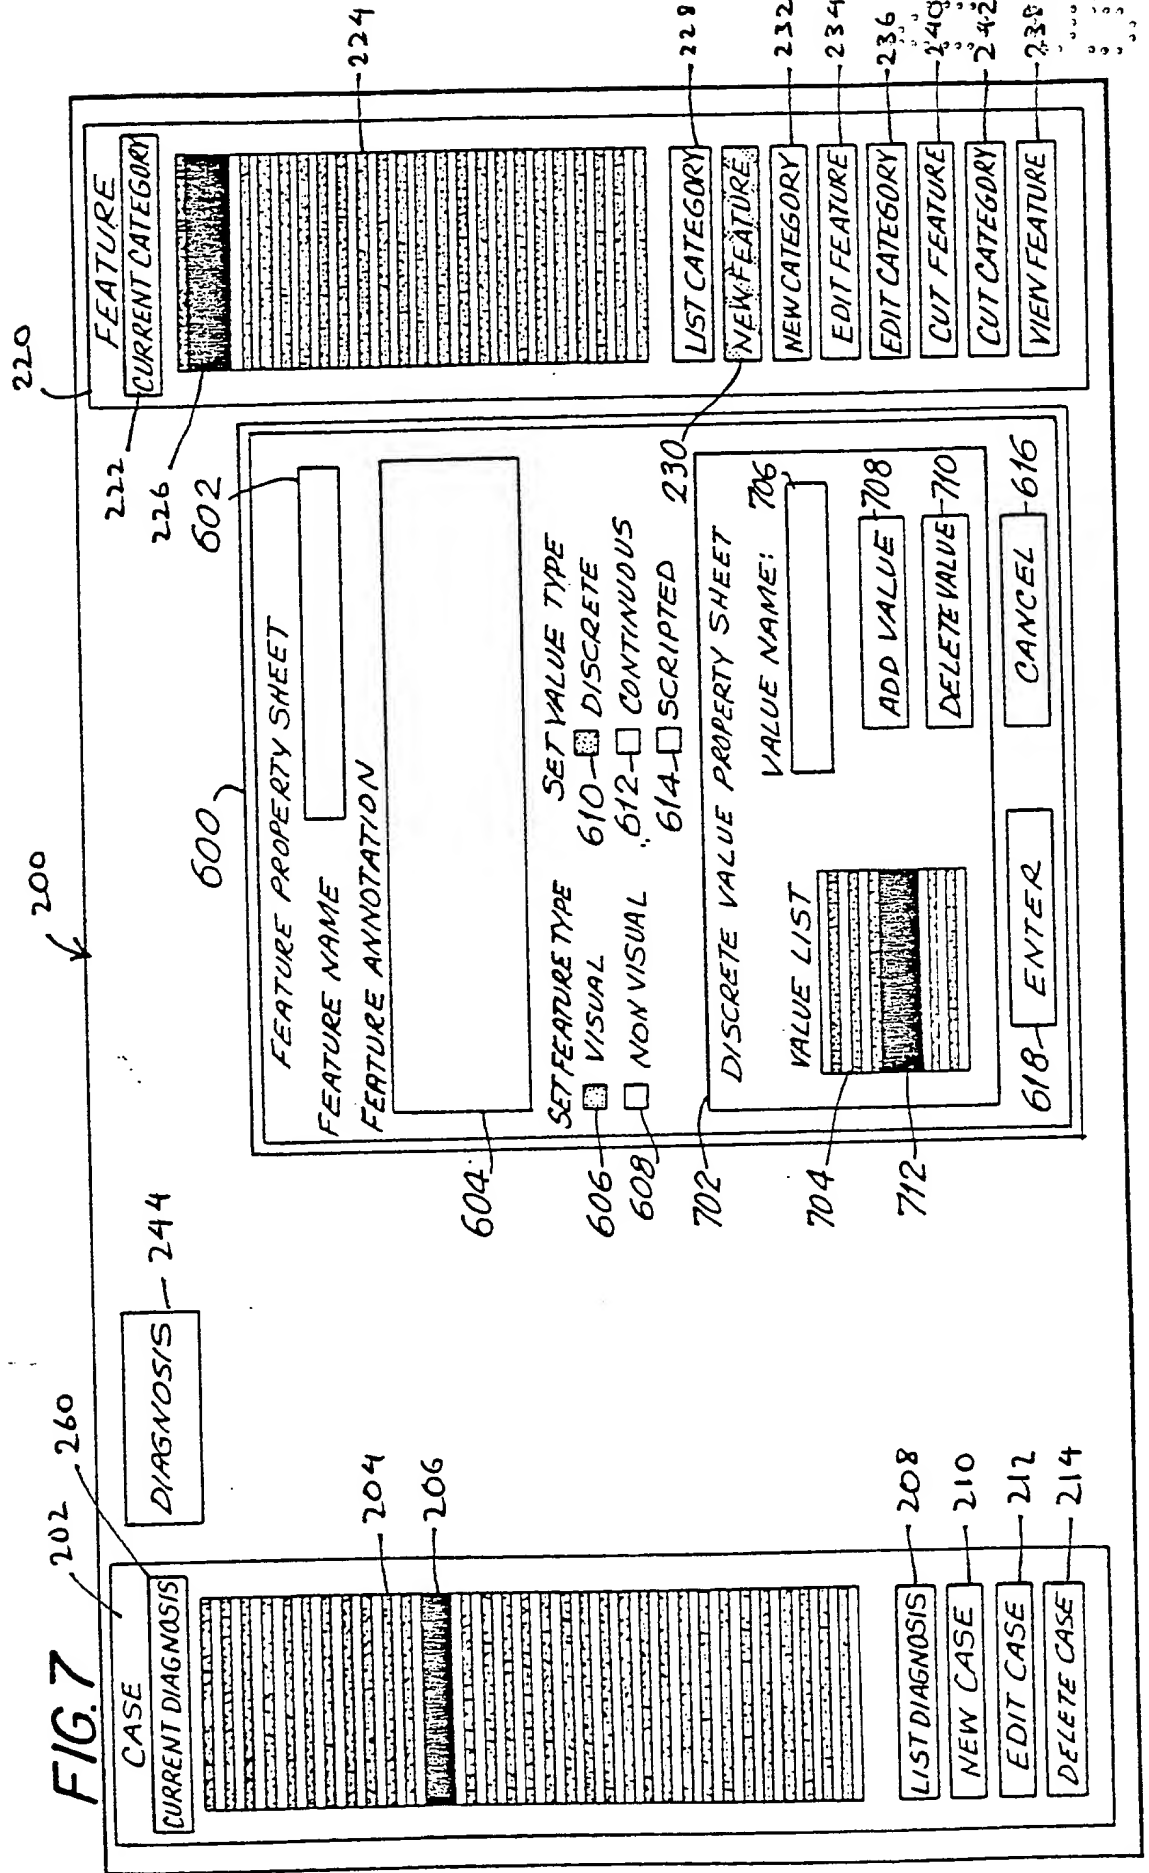 FIG.7
200
202
260
CASE
CURRENT DIAGNOSIS
204
206
LIST DIAGNOSIS
208
NEW CASE
210
EDIT CASE
212
DELETE CASE
214
DIAGNOSIS
244
600
FEATURE PROPERTY SHEET
FEATURE NAME
602
FEATURE ANNOTATION
604
SET FEATURE TYPE
606
VISUAL
608
NON VISUAL
SET VALUE TYPE
610
DISCRETE
612
CONTINUOUS
614
SCRIPTED
702
DISCRETE VALUE PROPERTY SHEET
VALUE LIST
704
712
VALUE NAME:
706
ADD VALUE
708
DELETE VALUE
710
618
ENTER
CANCEL
616
220
FEATURE
222
CURRENT CATEGORY
226
224
LIST CATEGORY
228
230
NEW FEATURE
NEW CATEGORY
232
EDIT FEATURE
234
EDIT CATEGORY
236
CUT FEATURE
240
CUT CATEGORY
242
VIEW FEATURE
238